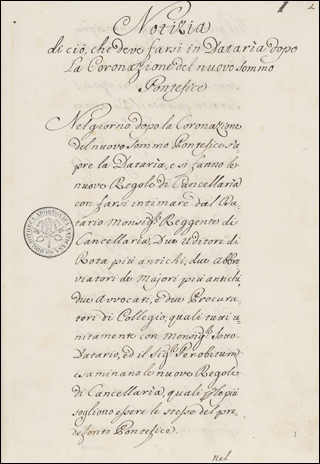 Notizia
di ciò, che deve farsi in Dataria dopo
La Coronazione del nuovo Sommo
Pontefice
Nel giorno dopo la Coronazione
del nuovo Sommo Pontefice si a
pre la Dataria, e si fanno le
nuove Regole di Cancellaria
con farsi intimare dal Da
tario Monsig.r Reggente di
Cancellaria, Due Uditori di
Rota più antichi, due Abbre
viatori de Majori più antichi,
due Avvocati, e due Procura
tori di Collegio, quali tutti u
nitamente con Monsig.r Sotto
Datario, ed il Sig.r Perobitum
esaminano le nuove Regole
di Cancellaria, quali più
sogliono essere le stesse del pre
defonto Pontefice.
nel